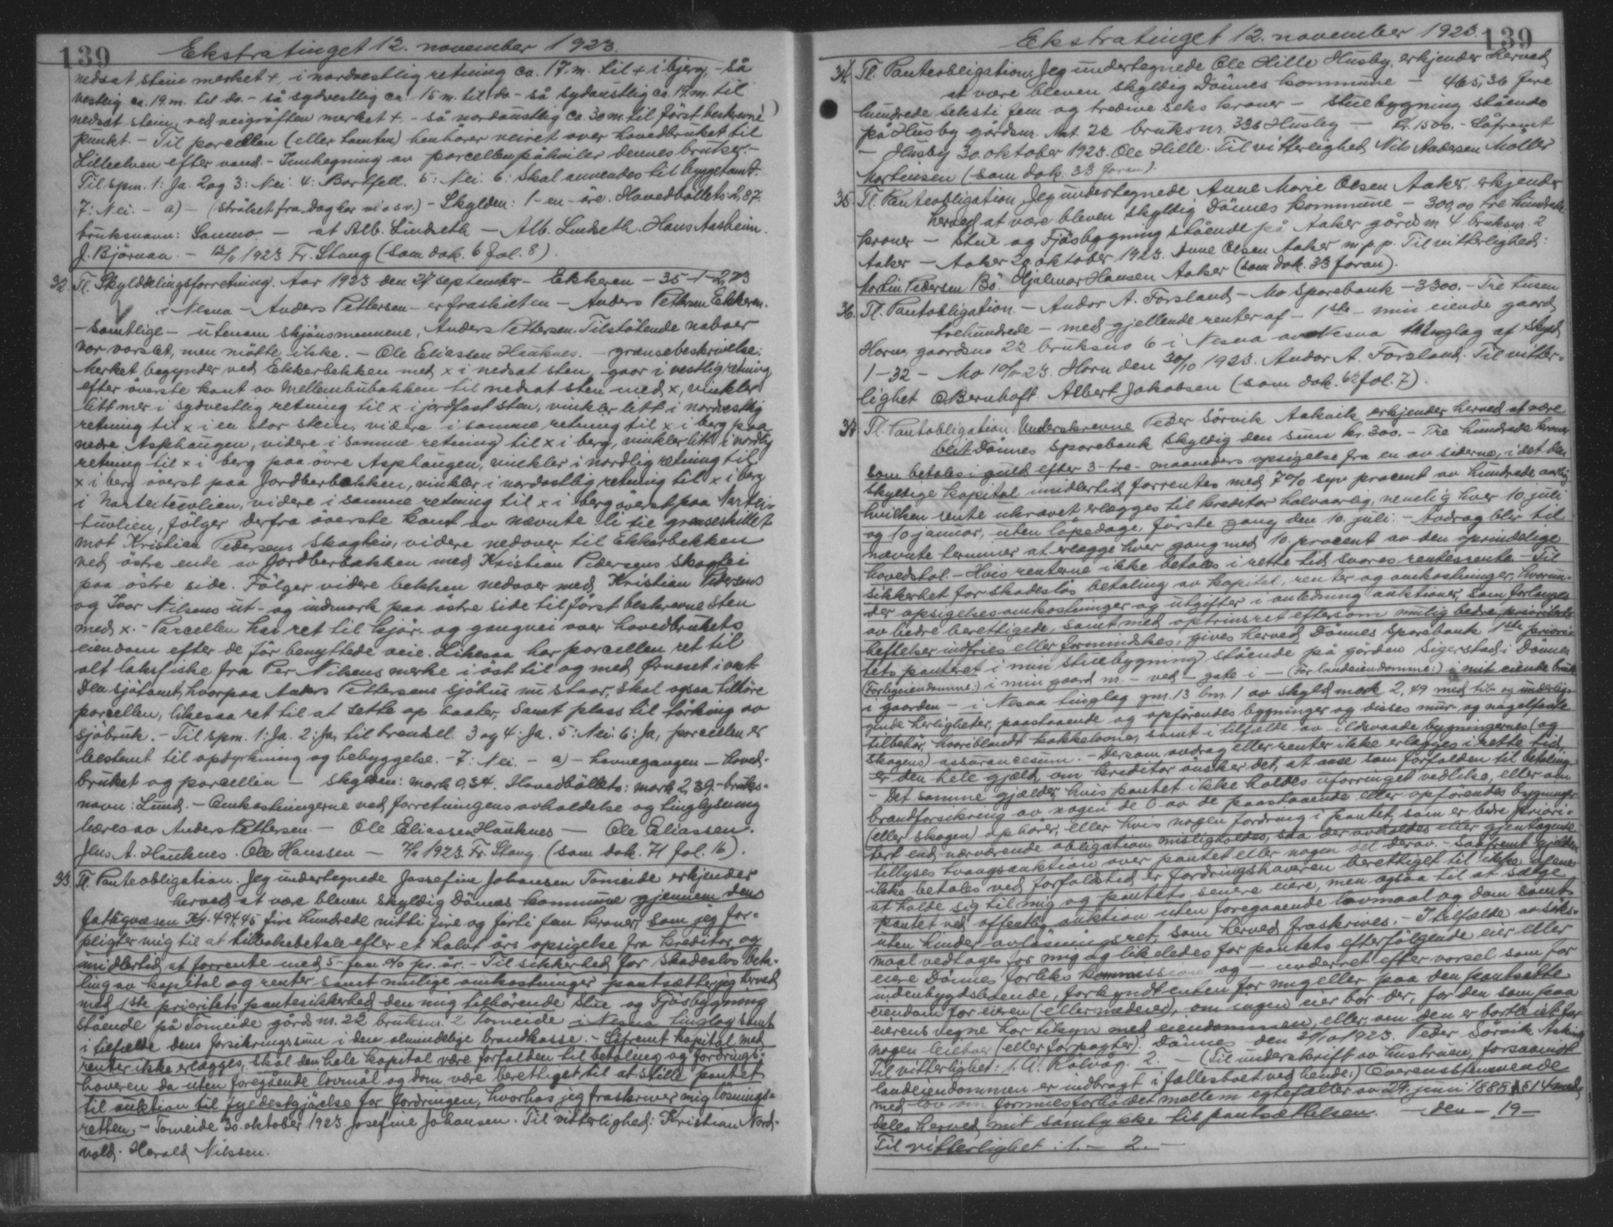 139
Ekstratinget 12. november 1923.
nedsat stein merket +, i nordvestlig retning ca. 17. m. til + i bjerg, - så
vestlig ca. 19. m. til do - så sydvestlig ca. 15 m. til do - så sydaustlig ca. 19. m. til
nedsat stein ved veigrøften merket +, - så nordaustlig ca 30 m. til først beskrevne
punkt. - Til porcellen (eller tomten) hører veiret over hovedbruket til
Lilleelven efter vand. - Innhegning av porcellen påhviler dennes bruker. -
Til spm. 1: Ja. 2 og 3: Nei. 4: Bortfell. 5: Nei. 6: Skal anvendes til byggetomt.
7: Nei. - a) - (strøket fra Dag har o.s.v.) - Skylden: 1 - en - øre. Hovedbøllets 2,87.
bruksnavn: - at Alb. Lindseth - Alb. Lindseth. Hans Aasheim.
J. Bjørnaa. - 12/11 1923 Fr. Stang (som dok. 6 fol. 8)
32. Tl. Skylddelingsforretning. Aar 1923 den 27 september - Ekkeren - 35 - 1 - 2,73
i Nesna - Anders Pettersen - erfraskilt en - Anders Pettersen Ekkeren.
- samtlige - utenom skjønsmennene, Anders Pettersen. Tilstøtende naboer
var varslet, men møtte ikke. - Ole Eliassen Hauknes. - grænsebeskrivelse:
Merket begynder ved Ekkerbekken med x i nedsat sten, - gaar i vestlig retning
efter øverste kant av Mellembubakken til nedsat sten med x, vinkler
litt mer i sydvestlig retning til x i jordfast sten, vinkler litt i nordvestlig
retning til x i en stor stein, videre i samme retning til x i berg paa
nedre Asphaugen, videre i samme retning til x i berg, vinkler litt i nordlig
retning til x i berg paa øvre Asphaugen, vinkler i nordlig retning til
x i berg øverst paa Jordberbakken, vinkler i nordostlig retning til x i berg
i, videre i samme retning til x i berg øverst paa
følger derfra øverste kant av nævnte li til grænseskillet
mot Kristian Pedersens Skogtei, videre nedover til Ekkerbekken
ved østre ende av Jordberbakken med Kristian Pedersens Skogtei
paa østre side. Følger videre bekken nedover med Kristian Pedersens
og Ivar Nilsens ut- og indmark paa østre side til først beskrevne sten
med x. - Parcellen har ret til kjør- og gangvei over hovedbrukets
eiendom efter de før benyttede veie. Likesaa har porcellen ret til
alt laksfiske fra Per Nilsens merke i øst til og med i vest.
Den sjøtomt, hvorpaa Anders Pettersens sjøhus nu staar, skal ogsaa tilhøre
porcellen, likesaa ret til at sette op baater, samt plass til tørking av
sjøbruk. - Til spm. 1: Ja. 2: Ja, til brensel. 3 og 4: Ja. 5: Nei. 6: Ja, porcellen er
bestemt til opdyrkning og bebyggelse. - 7: Nei. - a) - havnegangen - hoved-
bruket og porcellen - Skylden: mark 0,34. Hovedbøllets: mark 2,39. - bruks-
navn: Lund. - Omkostningerne ved forretningens avholdelse og tinglysning
bæres av Anders Pettersen. - Ole Eliassen Hauknes - Ole Eliassen.
Jens A. Hauknes. Ole Hanssen - 1923. Fr. Stang (som dok. 71 fol. 16).
33. Tl. Panteobligation. Jeg undertegnede Jossefine Johansen Tomeide erkjender
herved at være bleven skyldig Dönnes kommune gjennem dens
fattigvæsen Kr. 494.45 fire hundrede nitti fire og førti fem kroner, som jeg for-
pligter mig til at tilbakebetale efter et halvt års opsigelse fra kreditor og
imidlertid at forrente med 5 - fem % pr. år. - Til sikkerhed for skadesløs beta-
ling av kapital og renter samt mulige omkostninger pantsætter jeg herved
med 1ste prioritets pantesikkerhed den mig tilhørende Stue og Fjøsbygning
stående på Tomeide gårds nr. 22 bruksnr. 2 Tomeide i Nesna tinglag samt
i tilfælde dens forsikringssum i den almindelige brandkasse. - Såfremt kapital med
renter ikke erlægges, skal den hele kapital være forfalden til betaling og fordrings-
haveren da uten foregående lovmål og dom være berettiget til at stille pantet
til auktion til fyldestgjørelse for fordringen, hvorhos jeg fraskriver mig løsnings-
retten. - Tomeide 30. oktober 1923. Josefine Johansen. Til vitterlighed: Kristian Nord-
vold. Harald Nilssen.
Ekstratinget 12. november 1923.
139
34. Tl. Panteobligation. Jeg undertegnede Ole Hille Husby, erkjender herved
at være bleven skyldig Dönnes kommune - 465,36 fire
hundrede seksti fem og tredive seks kroner - Stuebygning stående
på Husby gårdsnr. 22 bruksnr. Husby - kr. 1500. - Såfremt
- Husby 30. oktober 1923. Ole Hille. Til vitterlighed Nils Andersen Møller
Mortensen (som dok. 33 foran).
35. Tl. Panteobligation. Jeg undertegnede Anne Marie Olsen Aaker erkjender
herved at være bleven skyldig Dönnes kommune - 300,00 tre hundrede
kroner - Stue og Fjøsbygning stående på Aaker gårds nr. 4 bruksnr. 2
Aaker - Aaker 20 oktober 1923. Anne Olsen Aaker m.p.p. Til vitterlighed:
Martin Pedersen Bø. Hjalmar Hansen Aaker (som dok. 33 foran).
36. Tl. Pantobligation. - Andor A. Forsland - Mo Sparebank - 3300. - Tre tusen
trehundrede - med gjellende renter af - 1ste - min eiende gaard
Horn, gaardsno 22 bruksno 6 i Nesna tinglag af skyld
1 - 32 - Mo 10/11-23. Horn den 30/10 1923. Andor A. Forsland. Til vitter-
lighet O. Bernhoft Albert Jakobsen (som dok. fol. 7).
37. Tl. Pantobligation. Underskrevne Peder Sørvik Aakvik erkjender herved at være
blit Dönnes Sparebank skyldig den sum kr. 300. - Tre hundrede kroner
som betales i guld efter 3 - tre - maaneders opsigelse fra en av siderne, i det den
skyldige kapital imidlertid forrentes med 7% syv procent av hundrede aarlig
hvilken rente ukrævet erlægges til kreditor halvaarlig, nemlig hver 10. juli
og 10 januar, uten løpedage, første gang den 10. juli. - Avdrag blir til
nævnte terminer at erlægge hver gang med 10 procent av den oprindelige
hovedstol. - Hvis renterne ikke betales i rette tid, svares rentesrente. - Til
sikkerhet for skadesløs betaling av kapital, renter og omkostninger, hvorun-
der opsigelsesomkostninger og utgifter i anledning auktioner, som forlanges
av bedre berettigede, samt med optrinsret eftersom mulig bedre prioriterte
heftelser indfries eller formindskes, gives herved Dönnes Sparebank 1ste priori-
tets panteret i min stuebygning stående på gården Sigerstad i Dönnes
(For byeiendomme:) i min gaard nr. - ved - gate i - (For landeiendomme:) i mit eiende bruk
i gaarden - i Nesna tinglag gnr. 13 bnr. 1 av skyld mark 2,49 med til- og underlig-
gende herligheter, paastaaende og opførendes bygninger og disses mur- og nagelfaste
tilbehør, hvoriblandt kakkelovne, samt i tilfælde av ildsvaade bygningernes (og
skogens) assurancesum. - Dersom avdrag eller renter ikke erlægges i rette tid,
er den hele gjæld, om kreditor ønsker det, at anse som forfalden til betaling.
- Det samme gjælder hvis pantet ikke holdes uforringet vedlike, eller om
brandforsikring av nogen de av de paastaaende eller opførendes bygninger
(eller skogen) ophører, eller hvis nogen fordring i pantet, som er bedre priori-
tert end nærværende obligation misligholdes, saa der avholdes eller gjentagende
tillyses tvangsauktion over pantet eller nogen del derav. - Saafremt gjælden
ikke betales ved forfaldstid, er fordringshaveren berettiget til ikke alene
at holde sig til mig og pantets senere eiere, men ogsaa til at sælge
pantet ved offentlig auktion uten foregaaende lovmaal og dom samt
uten hinder avløsningsret, som herved fraskrives. - I tilfælde av søks-
maal vedtages for mig og likeledes for pantets efterfølgende eier eller
eiere Dönnes forliks kommission og - underret efter varsel som for
indenbygdsboende, forkyndt enten for mig eller paa den pantsatte
eiendom for eieren (eller medeier), om ingen eier bor der, for den som paa
eierens vegne har tilsyn med eiendommen, eller, om den er bortleiet for
nogen leieboer (eller forpagter). Dönnes den 29/10 1923. Peder Sørvik Aakvik
Til vitterlighet: 1. A. Rølvåg. 2. - (Til underskrift av hustruen, forsaavidt
landeiendommen er indbragt i fællesboet ved hende:) Overensstemmende
med lov om formuesforholdet mellem egtefæller av 29. juni 1888 § 15 jfr. med-
deles herved mit samtykke til pantsættelsen. - den - 19 -
Til vitterlighet: 1. - 2. -